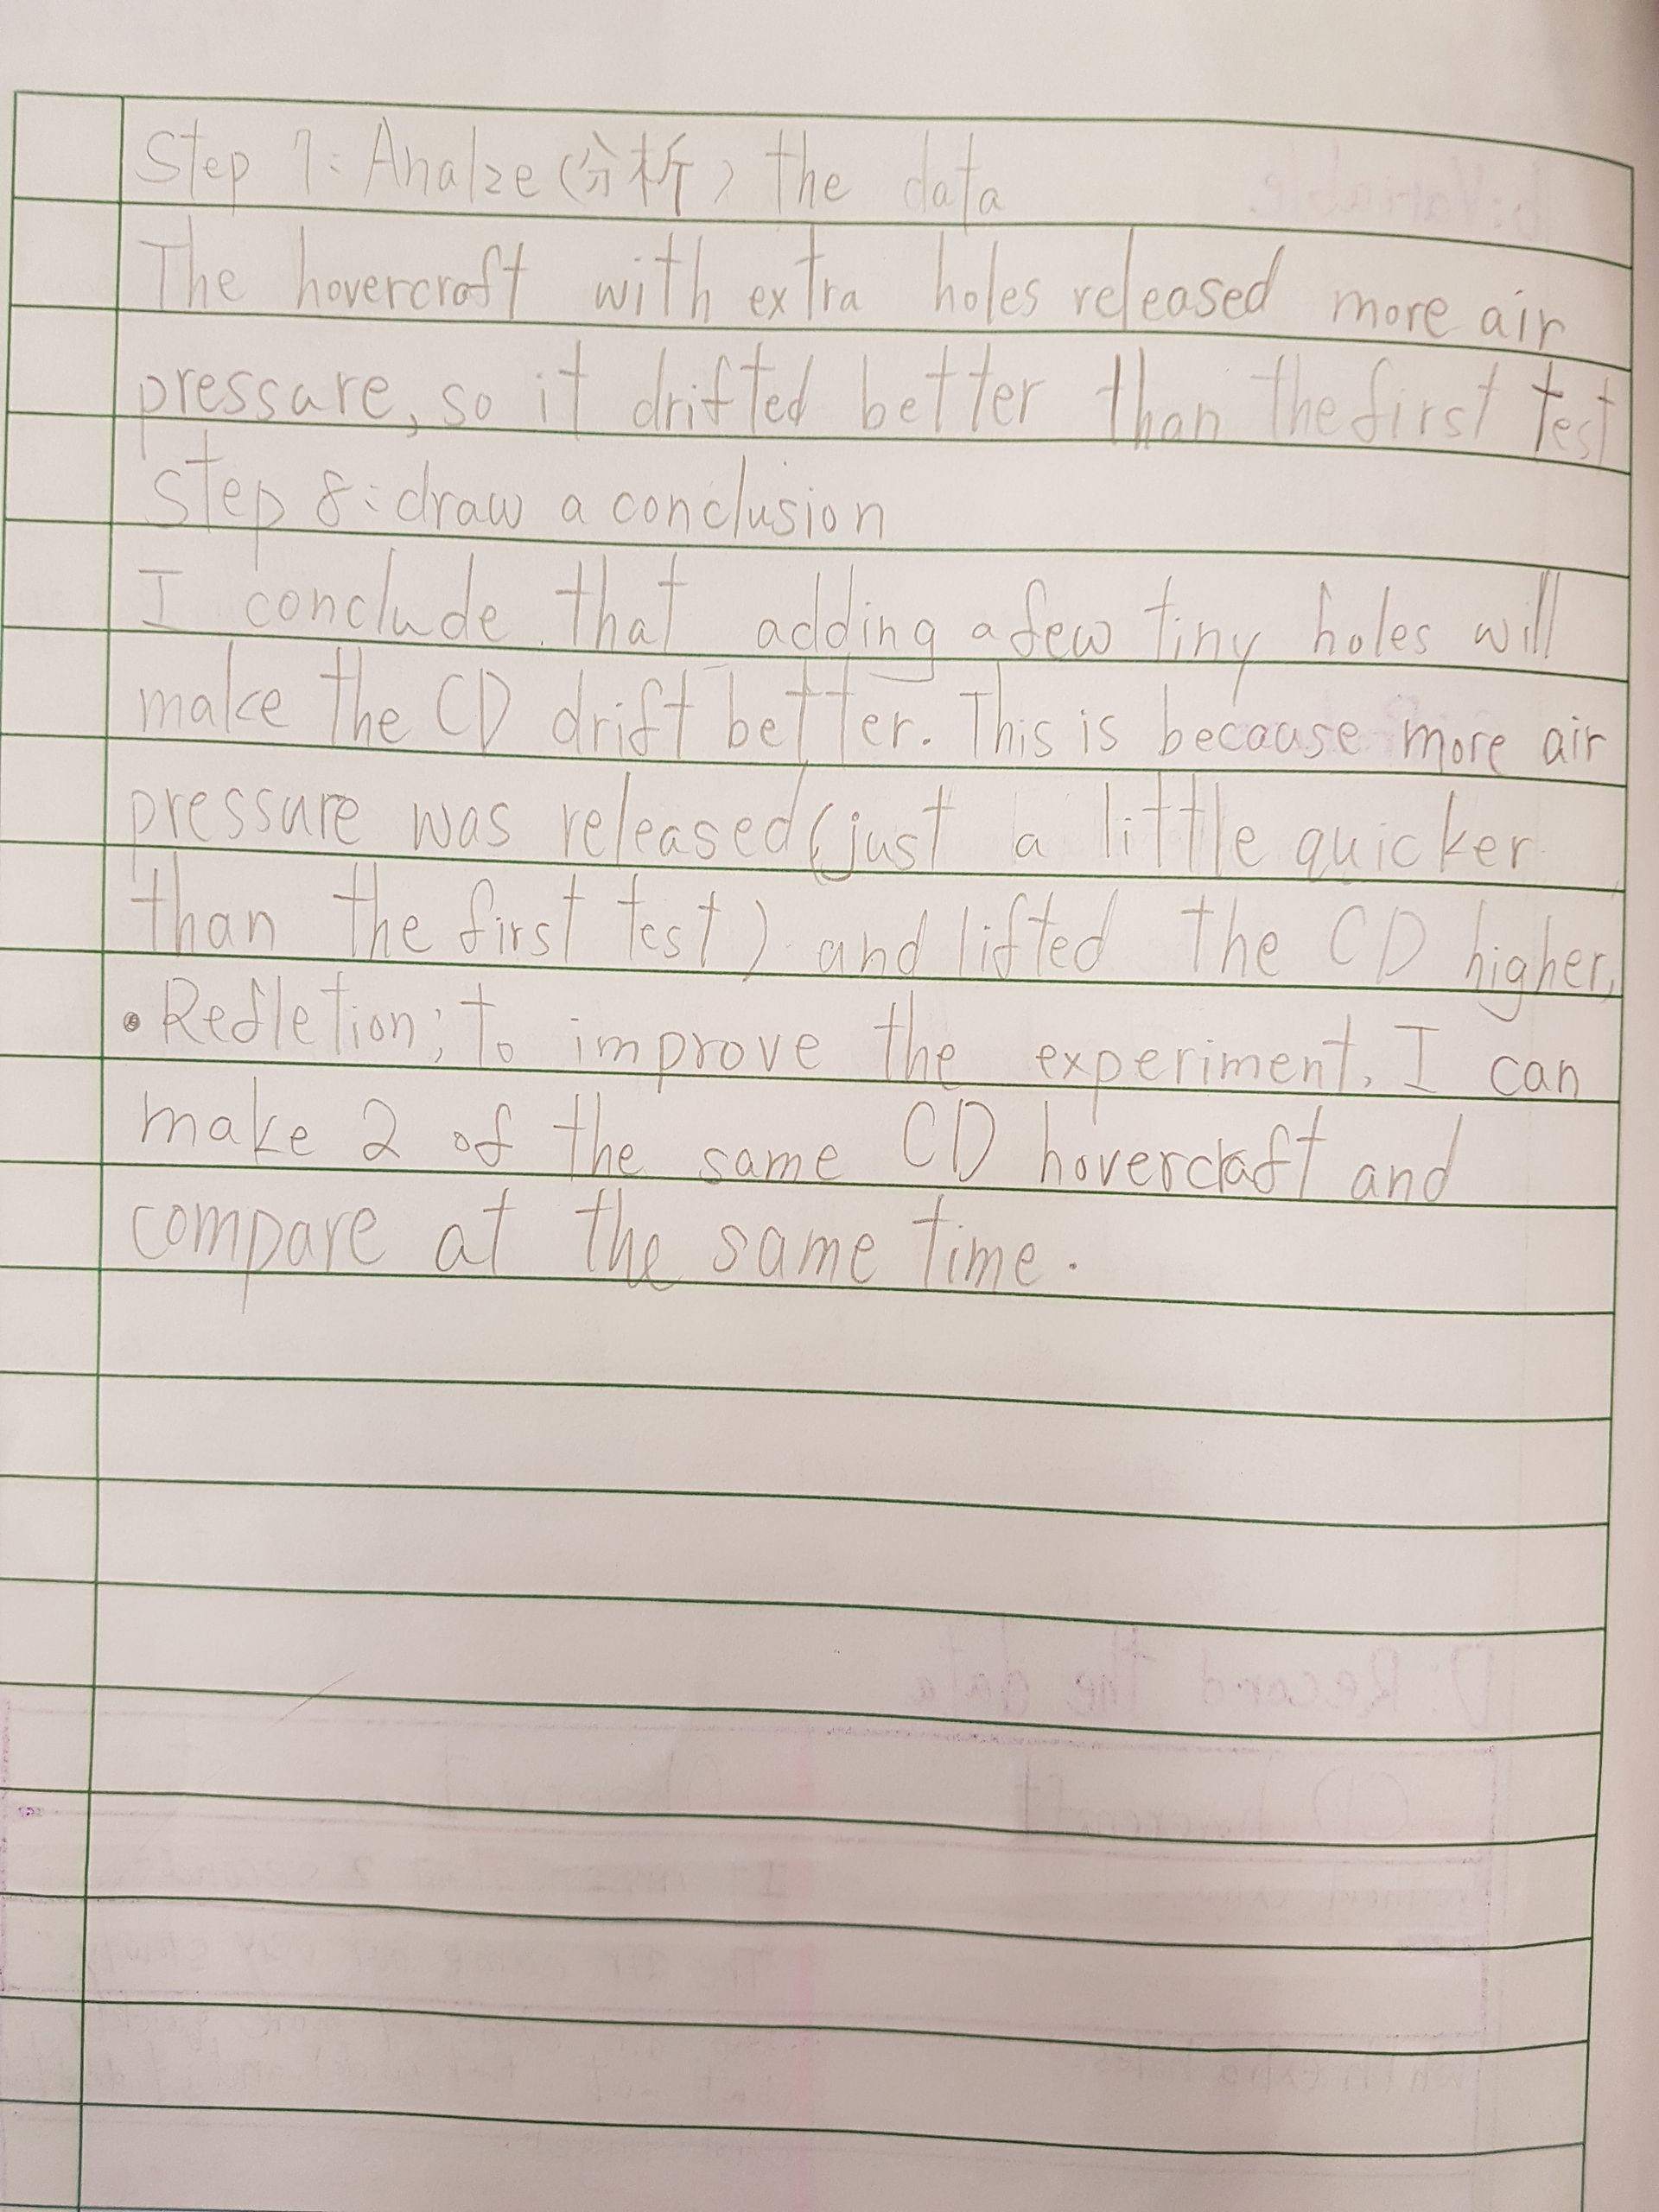 Step 7: Analze (分析) the data
The hovercraft with extra holes released more air
pressure, so it drifted better than the first test
Step 8: draw a conclusion
I conclude that adding a few tiny holes will
make the CD drift better. This is because more air
pressure was released (just a little quicker
than the first test) and lifted the CD higher.
• Refletion: to improve the experiment, I can
make 2 of the same CD hovercraft and
compare at the same time.